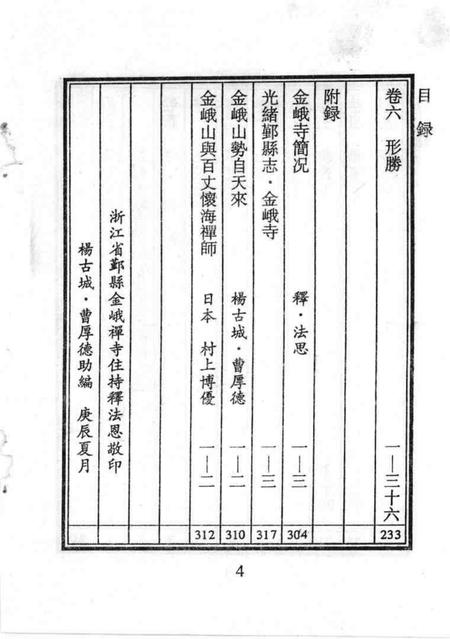 目録
卷六 形勝 一—三十六 233
附録
金峨寺簡况 釋·法思 一—三 304
光緒鄞縣志·金峨寺 一—三 317
金峨山勢自天來 楊古城·曹厚德 一—二 310
金峨山與百丈懷海禪師 日本 村上博優 一—二 312
浙江省鄞縣金峨禪寺住持釋法恩敬印
楊古城·曹厚德助編 庚辰夏月
4